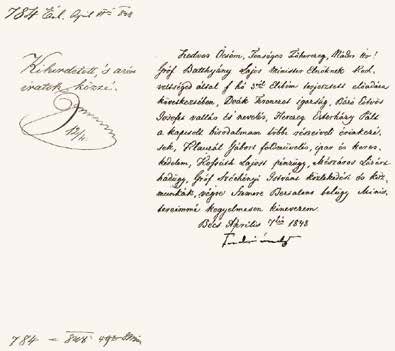 784 Eln. April
Kihirdetett, s az
iratok közzé.
12/4
Kedves Öcsém, Fenséges Főherczeg, Nádor Úr!
Gróf Batthyány Lajos Minister Elnöknek Ked-
vességed által f hó 3ról Elém terjesztett előadása
következésében, Deák Ferenczet igazság, Báró Eötvös
Józsefet vallás és nevelés, Herczeg Esterházy Pált
a kapcsolt birodalmam több részeivel érintkezé-
sek, Klauzál Gábort földmüvelés, ipar és keres-
kedelem, Kossuth Lajost pénzügy, Mészáros Lázárt
hadügy, Gróf Széchényi Istvánt közlekedési és köz
munkák, végre Szemere Bertalant belügy Minis-
tereimmé kegyelmesen kinevezem.
Bécs Április 7én 1848
Ferdinánd
784